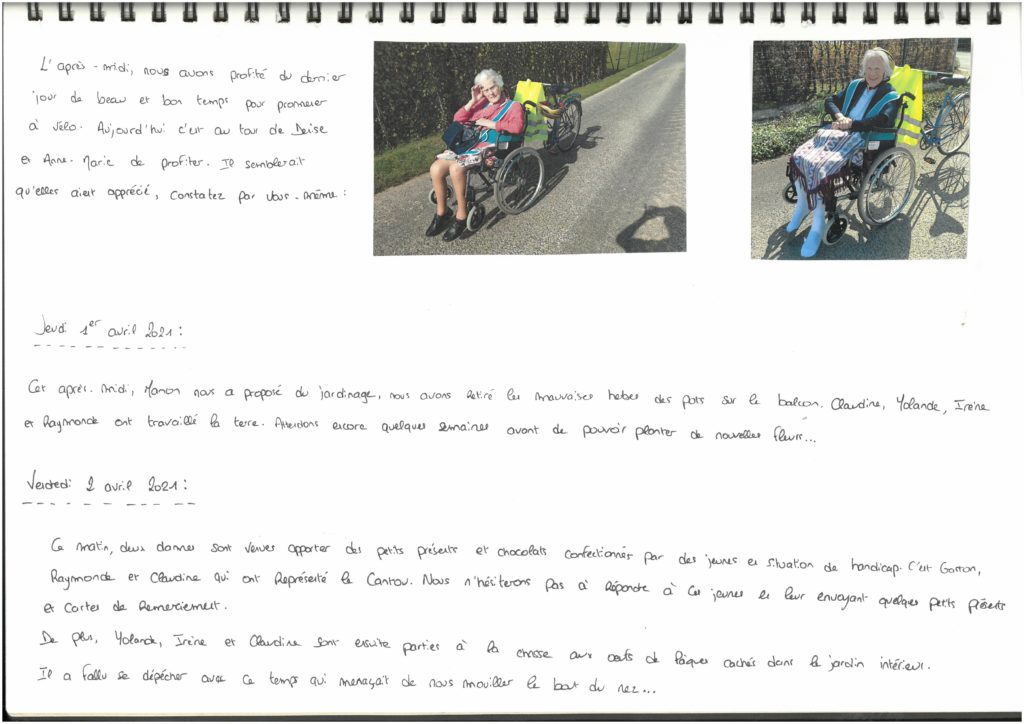 L'après-midi, nous avons profité du dernier
jour de beau et bon temps pour promener
à vélo. Aujourd'hui c'est au tour de Denise
et Anne-Marie de profiter. Il semblerait
qu'elles aient apprécié, constatez par vous-même :
Jeudi 1er avril 2021 :
Cet après-midi, Manon nous a proposé du jardinage, nous avons retiré les mauvaises herbes des pots sur le balcon. Claudine, Yolande, Irène
et Raymonde ont travaillé la terre. Attendons encore quelques semaines avant de pouvoir planter de nouvelles fleurs...
Vendredi 2 avril 2021 :
Ce matin, deux dames sont venues apporter des petits présents et chocolats confectionnés par des jeunes en situation de handicap. C'est Gaston,
Raymonde et Claudine qui ont représenté le Cantou. Nous n'hésiterons pas à répondre à ces jeunes en leur envoyant quelques petits présents
et cartes de remerciement.
De plus, Yolande, Irène et Claudine sont ensuite parties à la chasse aux oeufs de Pâques cachés dans le jardin intérieur.
Il a fallu se dépêcher avec ce temps qui menaçait de nous mouiller le bout du nez...